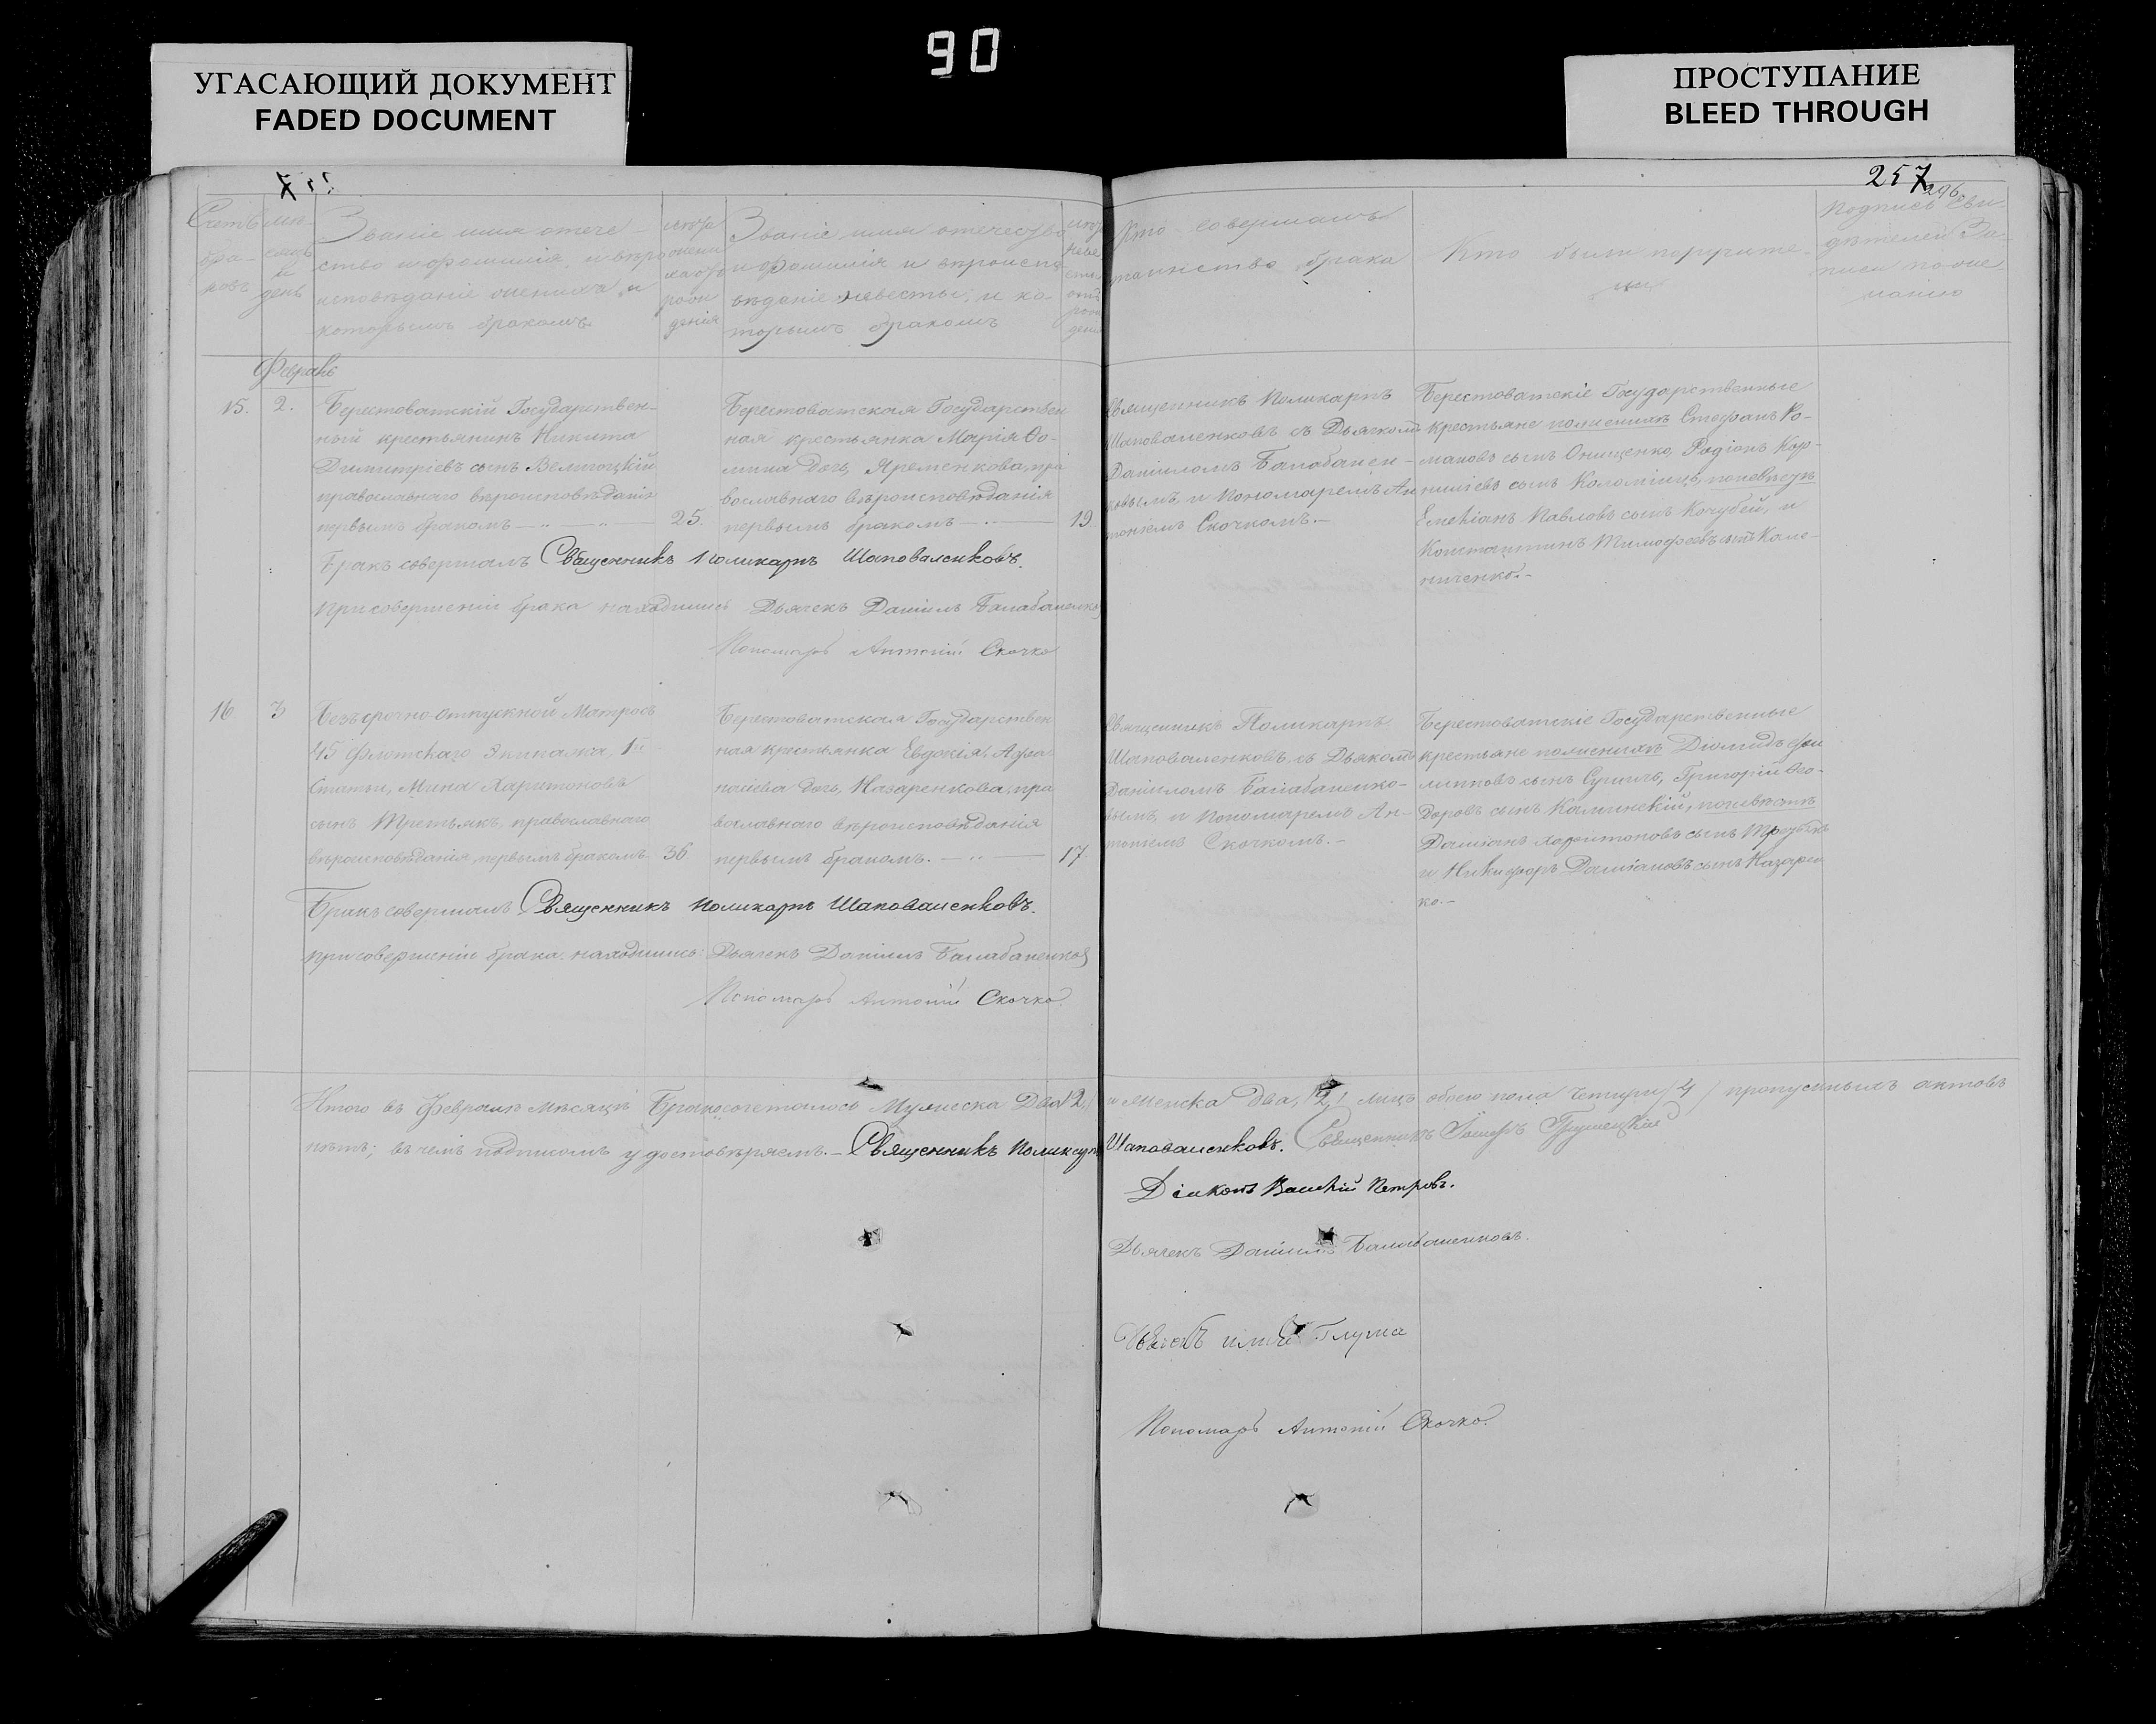 90
УГАСАЮЩИЙ ДОКУМЕНТ
FADED DOCUMENT
ПРОСТУПАНИЕ
BLEED THROUGH
257
296
Счетъ бра-
ковъ
мѣ-
сяцъ
и
день
Званіе имя отече-
ство и фамилія и вѣро
исповѣданіе жениха и
которымъ бракомъ
Званіе имя отечество
и фамилія и вѣроиспо
вѣданіе невесты, и ко-
торымъ бракомъ
Кто совершалъ
таинство брака
Кто были поручите-
ли
Подпись сви-
дѣтелей За-
писи по же-
ланію
Февраль
15.
2.
Берестоватскій Государствен-
ный крестьянинъ Никита
Димитріевъ сынъ Величоцкій
православнаго вѣроисповѣданія
первымъ бракомъ
25.
Берестоватская Государствен
ная крестьянка Марія Фо-
мина дочь, Яременкова, пра
вославнаго вѣроисповѣданія
первымъ бракомъ
19
Священникъ Поликарпъ
Шаповаленковъ съ Дьячкомъ
Даніиломъ Балабанен-
ковымъ, и Пономаремъ Ан
тоніемъ Скочкомъ.-
Берестоватскіе Государственные
крестьяне по женихѣ Стефанъ Ро-
мановъ сынъ Онищенко, Родіонъ Кор-
ниліевъ сынъ Коломіецъ, по невѣстѣ
Емеліанъ Павловъ сынъ Кочубей, и
Константинъ Тимофеевъ сынъ Кале-
ниченко.-
Бракъ совершалъ Священникъ Поликарпъ Шаповаленковъ.
При совершеніи брака находились Дьячекъ Даніилъ Балабаненко
Пономарь Антоній Скочко
16
3
Безсрочно-отпускной Матросъ
45 флотскаго Экипажа, 1й
Статьи, Мина Харитоновъ
сынъ Третьякъ, православнаго
вѣроисповѣданія первымъ бракомъ
36
Берестоватская Государствен
ная крестьянка Евдокія, Афа
насіева дочь, Назаренкова, пра
вославнаго вѣроисповѣданія
первымъ бракомъ.
17
Священникъ Поликарпъ
Шаповаленковъ, съ Дьякомъ
Даніиломъ Балабаненко-
вымъ, и Пономаремъ Ан-
тоніемъ Скочкомъ.-
Берестоватскіе Государственные
крестьяне по женихѣ Діомидъ Фи
липповъ сынъ Сушиль, Григорій Фео-
доровъ сынъ Калинскій, по невѣстѣ
Даміанъ Харитоновъ сынъ Третьякъ
и Никифоръ Даміановъ сынъ Назарен
ко.-
Бракъ совершалъ Священникъ Поликарпъ Шаповаленковъ.
при совершеніи брака находились: Дьячекъ Даніилъ Балабаненковъ
Пономарь Антоній Скочко.
Итого въ Февралѣ мѣсяцѣ Бракосочеталось Мужеска Два /2/ и женска два, /2/ лицъ обоего пола Четыри /4/ пропусныхъ актовъ
нѣтъ; въ чемъ подписомъ удостовѣряемъ.- Священникъ Поликарпъ Шаповаленковъ. Священникъ Грушецкій
Діаконъ Василій Петровъ.
Дьячекъ Даніилъ Балабаненковъ.
Глума
Пономарь Антоній Скочко.